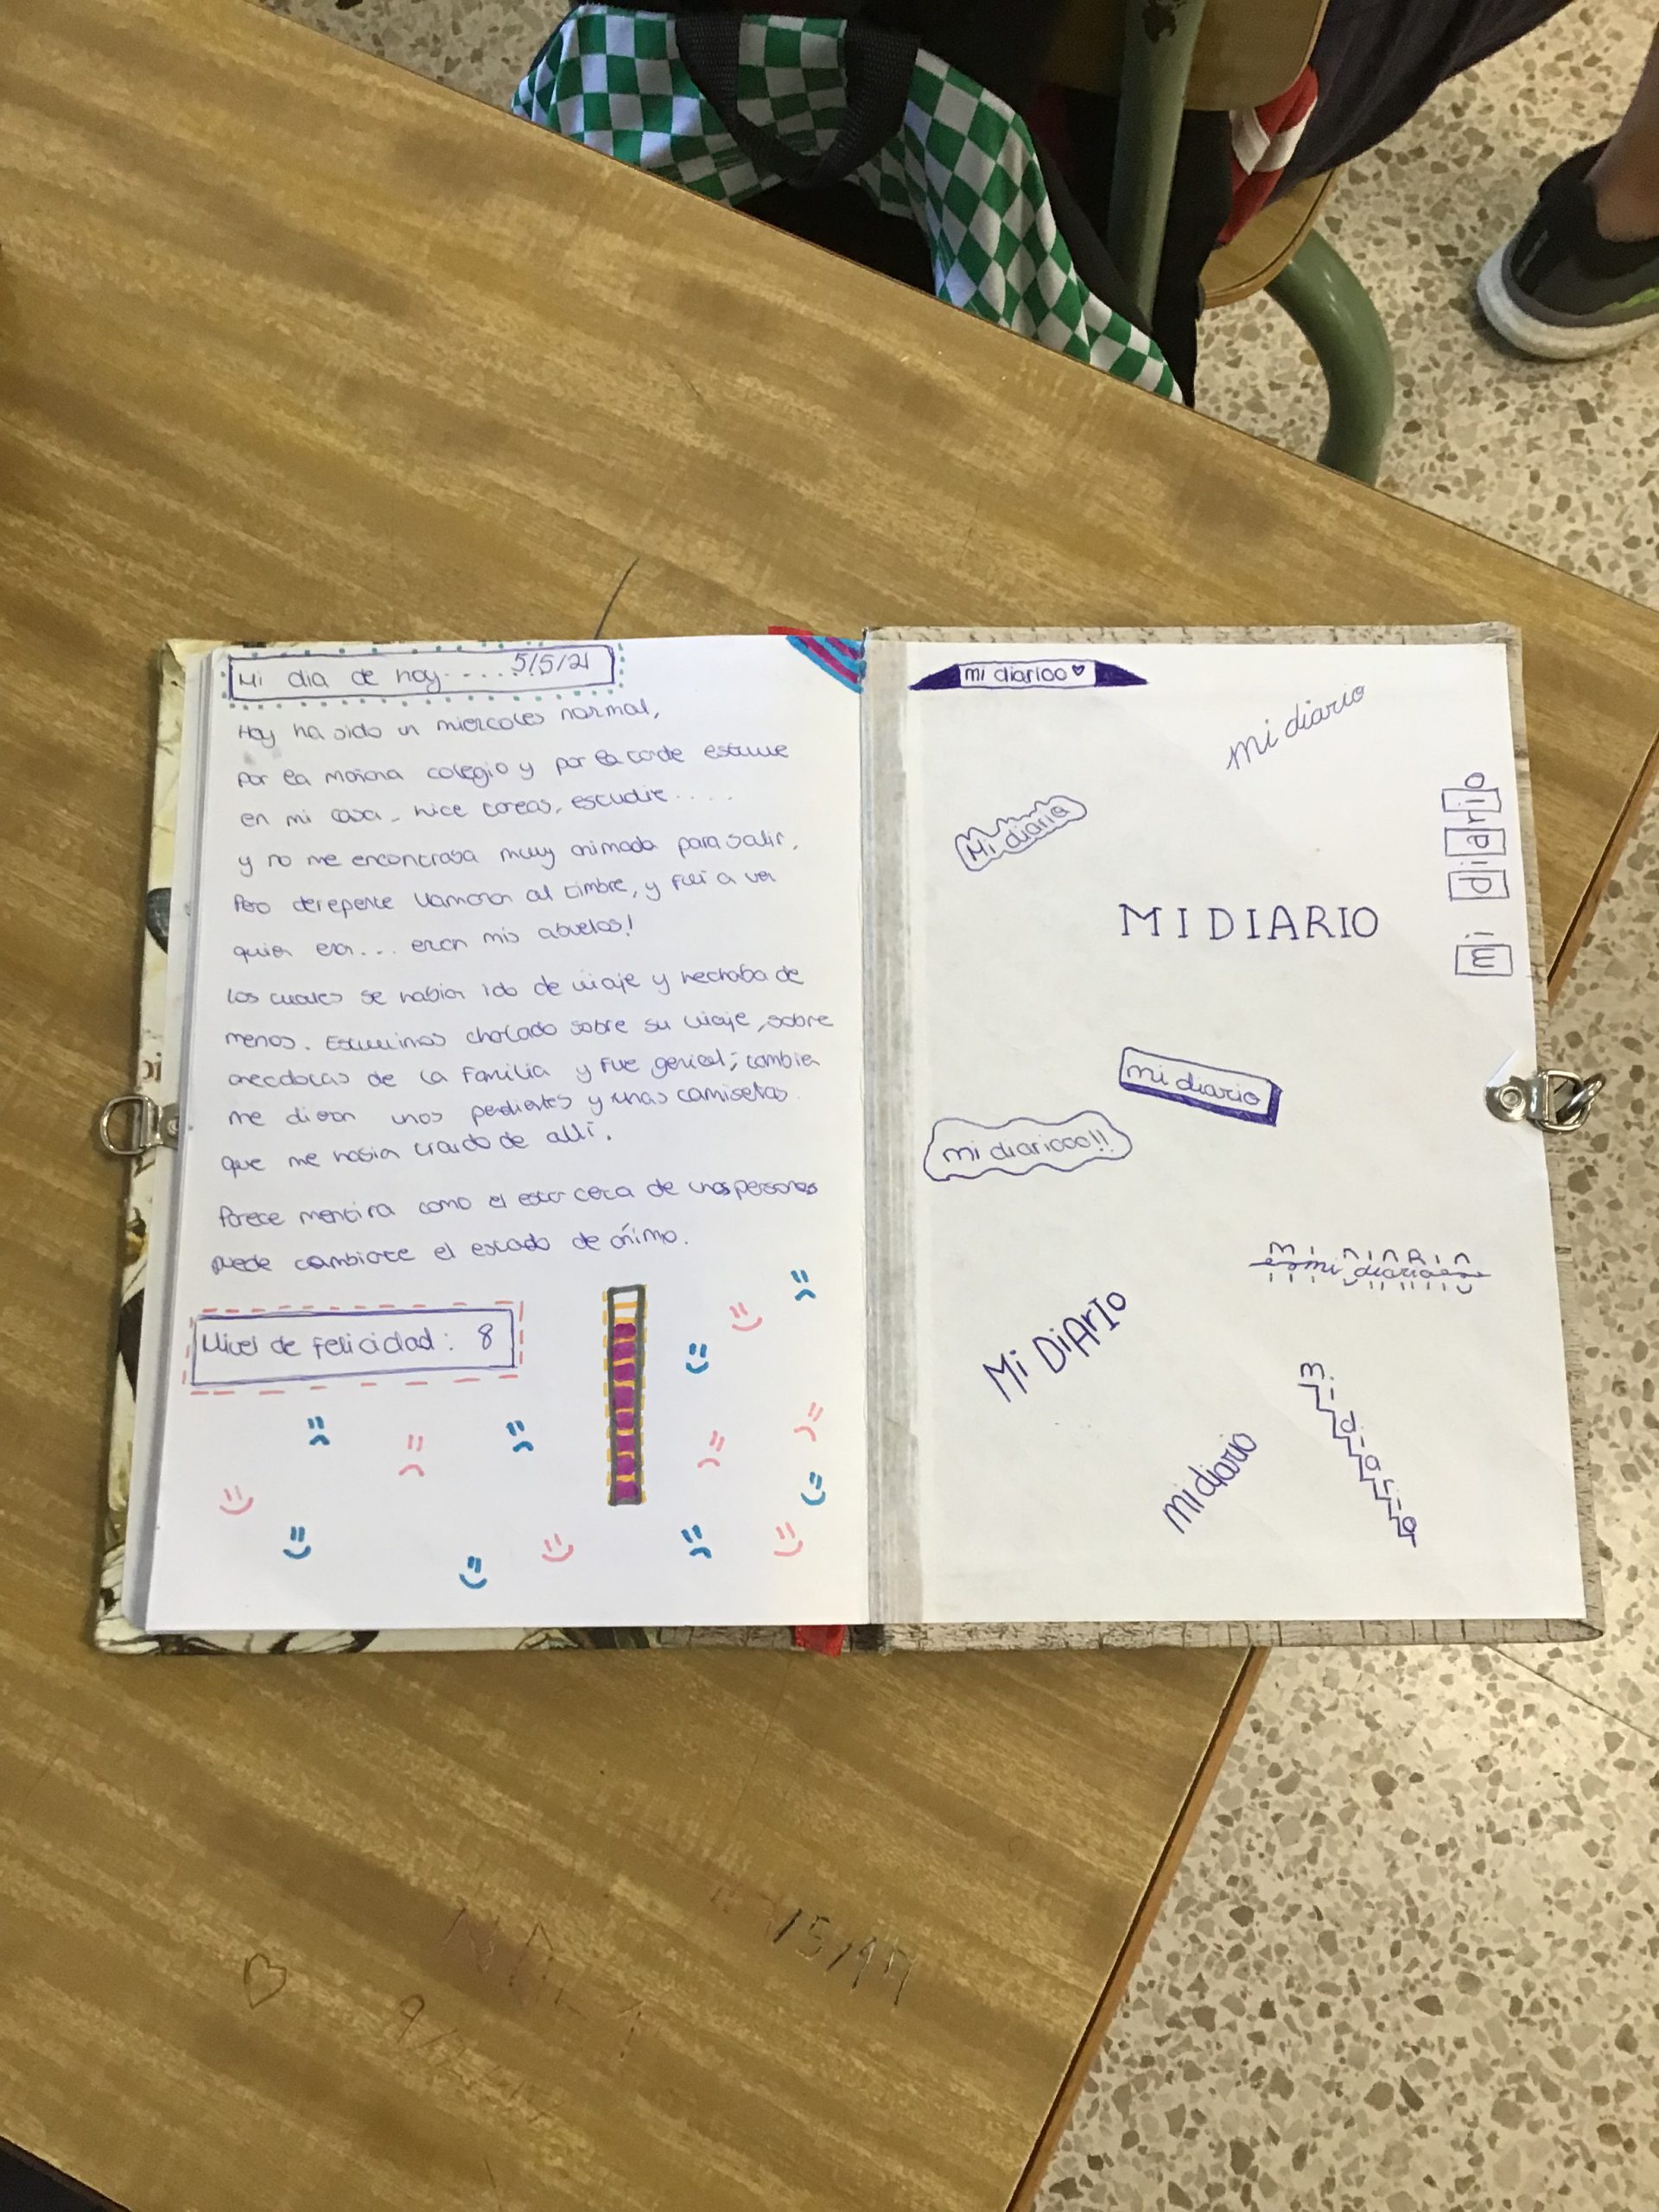 Mi dia de hoy.....5/5/21
Hoy ha sido un miercoles normal,
por la mañana colegio y por la tarde estuve
en mi casa, hice tareas, estudie....
y no me encontraba muy animada para salir,
Pero derepente llamaron al timbre, y fui a ver
quien era... eran mis abuelos!
los cuales se habian ido de viaje y hechaba de
menos. Estuvimos charlado sobre su viaje, sobre
anecdotas de la familia y fue genial; tambien
me dieron unos pendientes y unas camisetas
que me habian traido de allí.
Parece mentira como el estar cerca de unas personas
puede cambiarte el estado de ánimo.
Nivel de felicidad: 8
mi diarioo
mi diario
Mi diario
mi diario
MI DIARIO
mi diario
mi diariooo!!
mi diario
Mi DiArIo
mi diario
mi diario